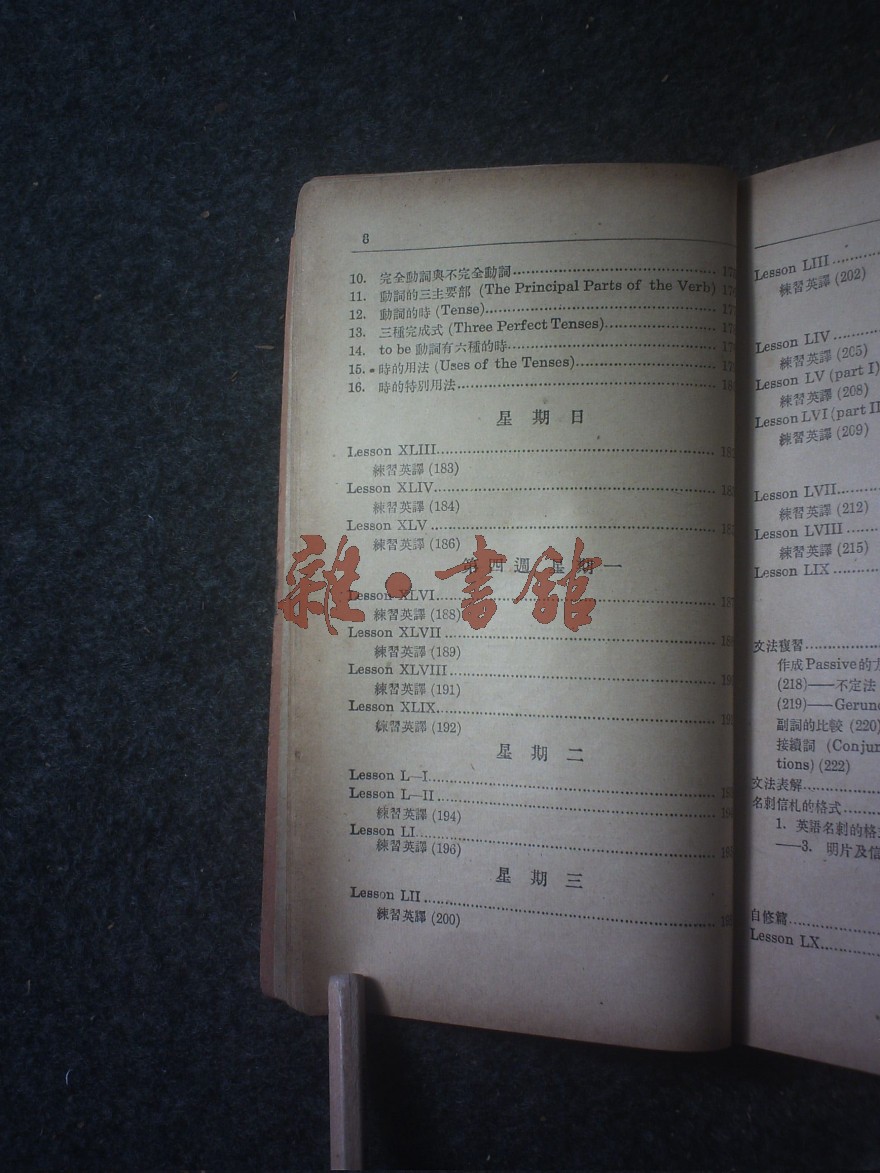 8
10. 完全動詞與不完全動詞
11. 動詞的三主要部 (The Principal Parts of the Verb)
12. 動詞的時 (Tense)
13. 三種完成式 (Three Perfect Tenses)
14. to be 動詞有六種的時
15. 時的用法 (Uses of the Tenses)
16. 時的特別用法
星期日
Lesson XLIII
練習英譯 (183)
Lesson XLIV
練習英譯 (184)
Lesson XLV
練習英譯 (186)
第四週 星期一
雜·書館
Lesson XLVI
練習英譯 (188)
Lesson XLVII
練習英譯 (189)
Lesson XLVIII
練習英譯 (191)
Lesson XLIX
練習英譯 (192)
星期二
Lesson L—I
Lesson L—II
練習英譯 (194)
Lesson LI
練習英譯 (196)
星期三
Lesson LII
練習英譯 (200)
Lesson LIII
練習英譯 (202)
Lesson LIV
練習英譯 (205)
Lesson LV (part I)
練習英譯 (208)
Lesson LVI (part II
練習英譯 (209)
Lesson LVII
練習英譯 (212)
Lesson LVIII
練習英譯 (215)
Lesson LIX
文法複習
作成 Passive 的
(218)——不定法
(219)——Gerun
副詞的比較 (220)
接續詞 (Conjun
tions) (222)
文法表解
名刺信札的格式
1. 英語名刺的格
——3. 明片及信
自修篇
Lesson LX